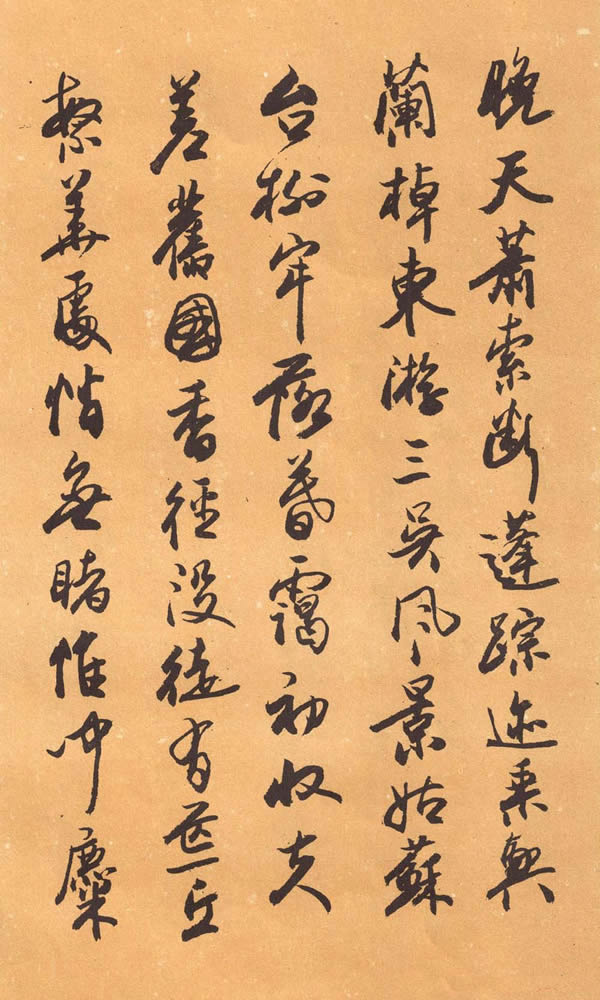 晚天蕭索斷蓬踪迹乘興
蘭棹東游三吳風景姑蘇
台榭牢落暮靄初收夫
差舊國香徑没徒有荒丘
繁華處悄無睹惟聞麋